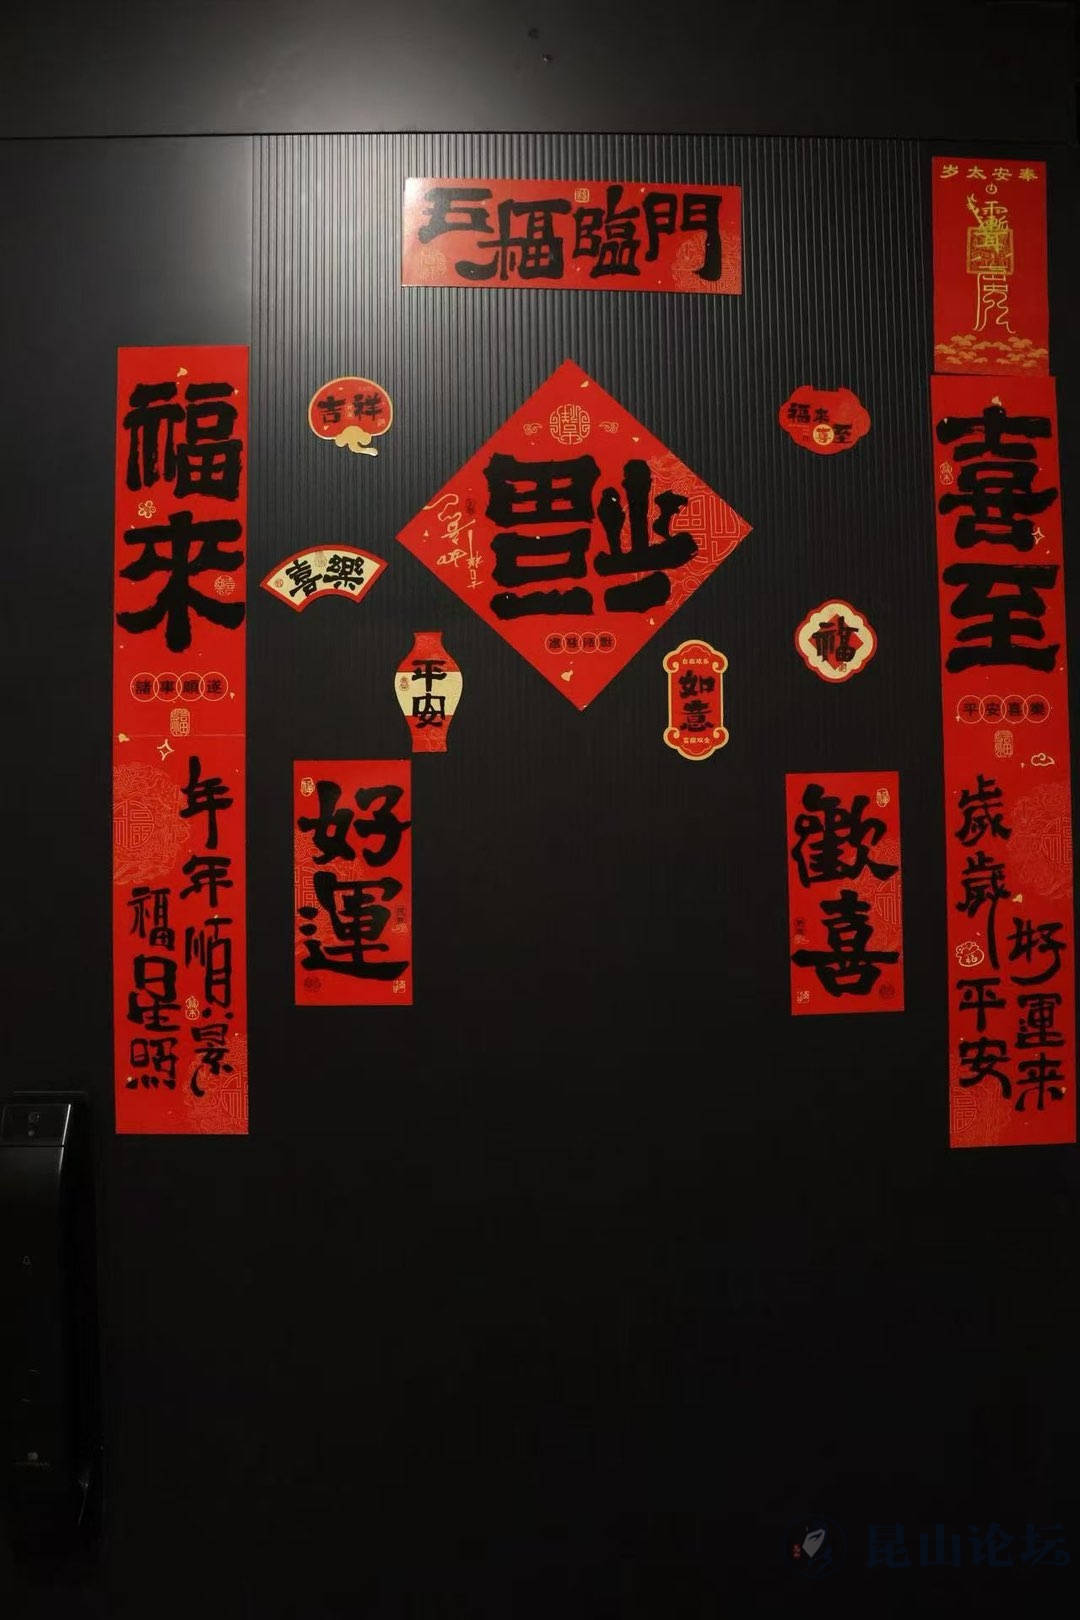 五福臨門
奉安太岁
福來
諸事順遂
年年順景
福星照
喜至
平安喜樂
歲歲平安
好運来
吉祥
福来
喜至
喜樂
平安
福
福
自在欢乐
如意
好運
歡喜
昆山论坛